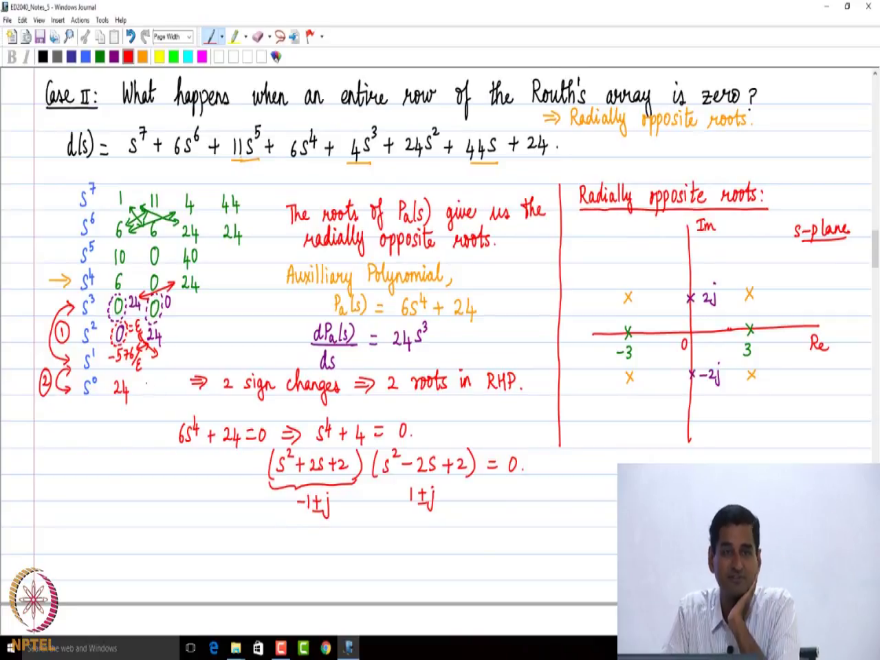 ED2040_Notes_5 - Windows Journal
File Edit View Insert Actions Tools Help
Page Width
B I
Case II: What happens when an entire row of the Routh's array is zero?
⇒ Radially opposite roots.
d(s) = s⁷ + 6s⁶ + 11s⁵ + 6s⁴ + 4s³ + 24s² + 44s + 24.
s⁷ 1 11 4 44
s⁶ 6 6 24 24
s⁵ 10 0 40
→ s⁴ 6 0 24
s³ 0 24 0 0
① s² 0 =ε 24
s¹ -576/ε
② s⁰ 24
⇒ 2 sign changes ⇒ 2 roots in RHP.
The roots of Pa(s) give us the
radially opposite roots.
Auxilliary Polynomial,
Pa(s) = 6s⁴ + 24
dPa(s)/ds = 24s³
6s⁴ + 24 = 0 ⇒ s⁴ + 4 = 0.
(s² + 2s + 2) (s² - 2s + 2) = 0.
-1±j 1±j
Radially opposite roots:
Im s-plane
x x 2j x
-3 0 3 Re
x x -2j x
NPTEL
Search the web and Windows